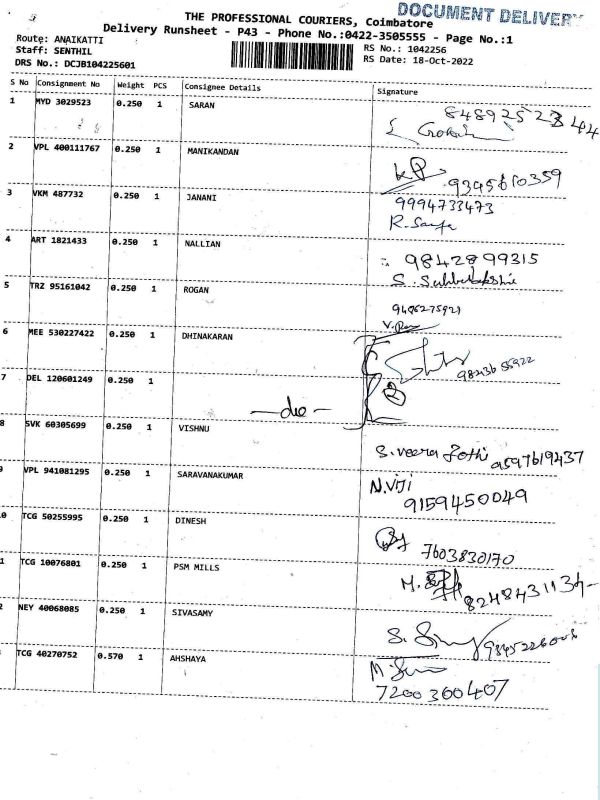 DOCUMENT DELIVERY
THE PROFESSIONAL COURIERS, Coimbatore
Delivery Runsheet - P43 - Phone No.:0422-3505555 - Page No.:1
Route: ANAIKATTI
Staff: SENTHIL
DRS No.: DCJB104225601
RS No.: 1042256
RS Date: 18-Oct-2022
S No Consignment No Weight PCS Consignee Details Signature
1 MYD 3029523 0.250 1 SARAN
8489252344
2 VPL 400111767 0.250 1 MANIKANDAN
KP
9395610359
3 VKM 487732 0.250 1 JANANI
9994733473
4 ART 1821433 0.250 1 NALLIAN
9842899315
S. Subbulakshmi
5 TRZ 95161042 0.250 1 ROGAN
9486275921
6 MEE 530227422 0.250 1 DHINAKARAN
9843655922
7 DEL 120601249 0.250 1
-do-
2
8 SVK 60305699 0.250 1 VISHNU
S. Veera Jothi 9597619437
9 VPL 941081295 0.250 1 SARAVANAKUMAR
N.Viji
9159450049
0 TCG 50255995 0.250 1 DINESH
7603830170
1 TCG 10076801 0.250 1 PSM MILLS
M.
2 NEY 40068085 0.250 1 SIVASAMY
TCG 40270752 0.570 1 AHSHAYA
7200360407